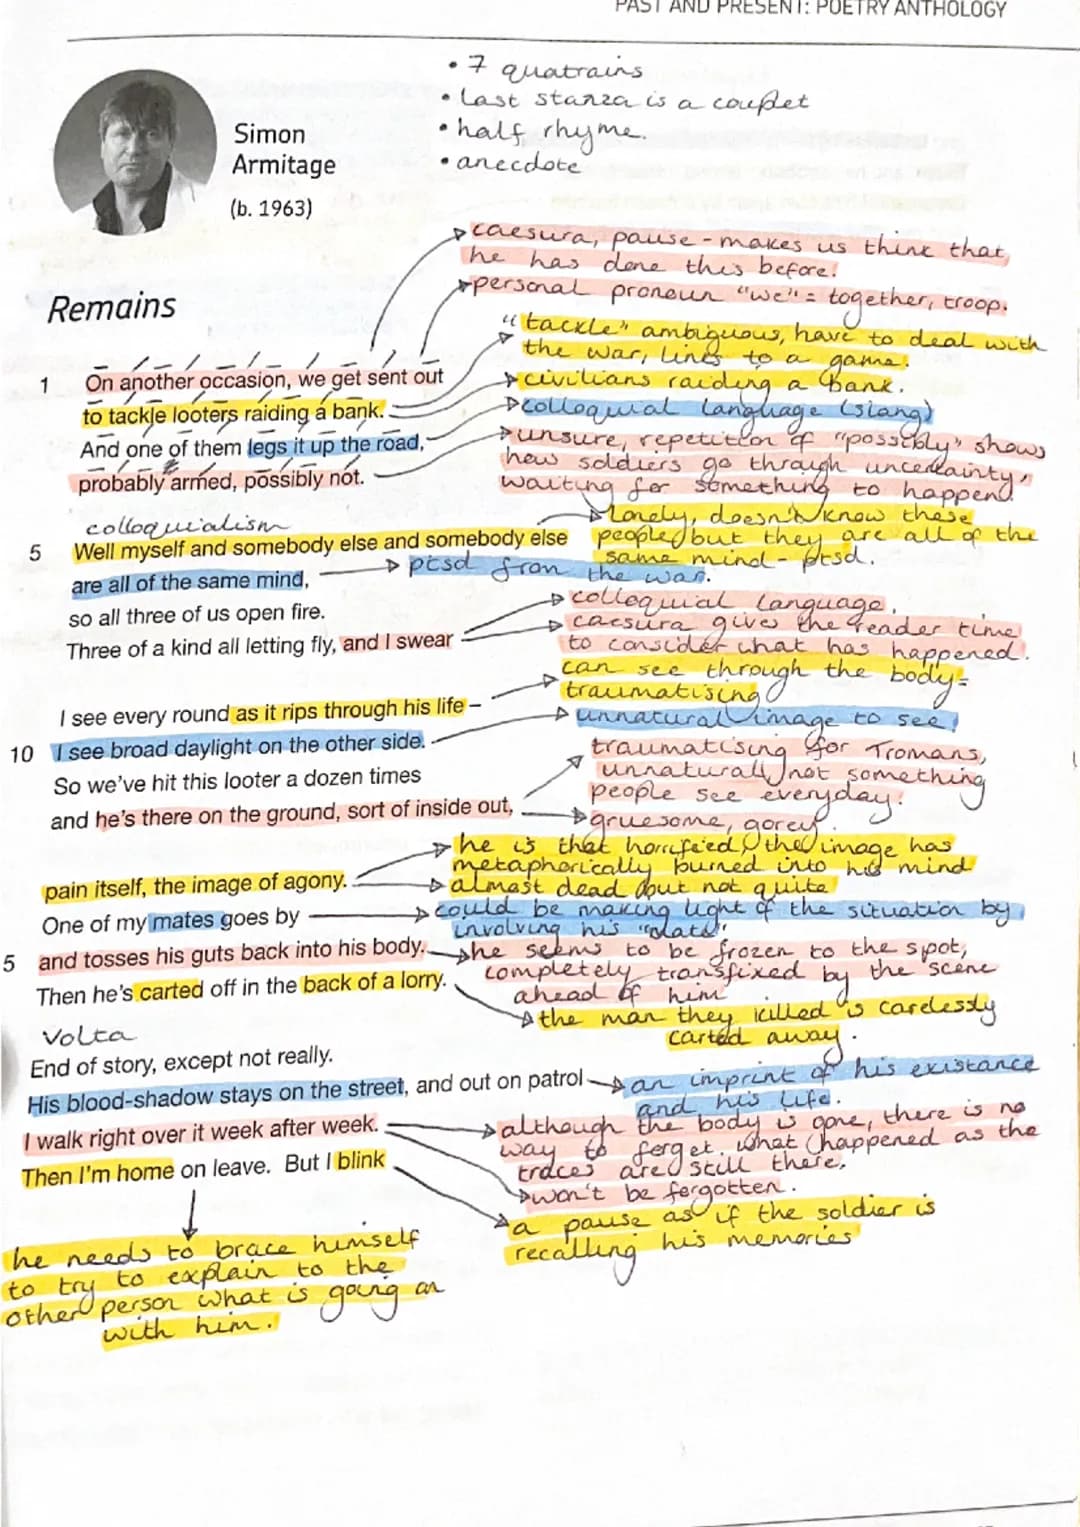 PAST AND PRESENT: POETRY ANTHOLOGY
• 7 quatrains
• Last stanza is a couplet
• half rhyme.
• anecdote
Simon
Armitage
(b. 1963)
caesura, pause - makes us think that
he has done this before.
personal pronoun "we" = together, troop.
Remains
"tackle" ambiguous, have to deal with
the war, links to a game.
1 On another occasion, we get sent out
civilians raiding a bank.
to tackle looters raiding a bank.
colloquial language (slang)
And one of them legs it up the road,
unsure, repetition of "possibly" shows
how soldiers go through uncertainty,
probably armed, possibly not.
waiting for something to happen.
colloquialism
lonely, doesn't know these
5 Well myself and somebody else and somebody else
people but they are all of the
same mind - ptsd.
are all of the same mind,
ptsd from the war.
so all three of us open fire.
colloquial language.
caesura gives the reader time
Three of a kind all letting fly, and I swear
to consider what has happened.
can see through the body =
traumatising
I see every round as it rips through his life –
unnatural image to see
10 I see broad daylight on the other side.
traumatising for Tromans,
unnatural, not something
So we've hit this looter a dozen times
people see everyday.
and he's there on the ground, sort of inside out,
gruesome, gorey.
he is that horrified, the image has
metaphorically burned into his mind
pain itself, the image of agony.
almost dead but not quite
One of my mates goes by
could be making light of the situation by
involving his "mate"
5 and tosses his guts back into his body.
he seems to be frozen to the spot,
completely transfixed by the scene
ahead of him
Then he's carted off in the back of a lorry.
the man they killed is carelessly
carted away.
Volta
End of story, except not really.
His blood-shadow stays on the street, and out on patrol
an imprint of his existance
and his life.
I walk right over it week after week.
although the body is gone, there is no
way to forget what happened as the
traces are still there.
Then I'm home on leave. But I blink
won't be forgotten.
a pause as if the soldier is
recalling his memories
he needs to brace himself
to try to explain to the
other person what is going on
with him.